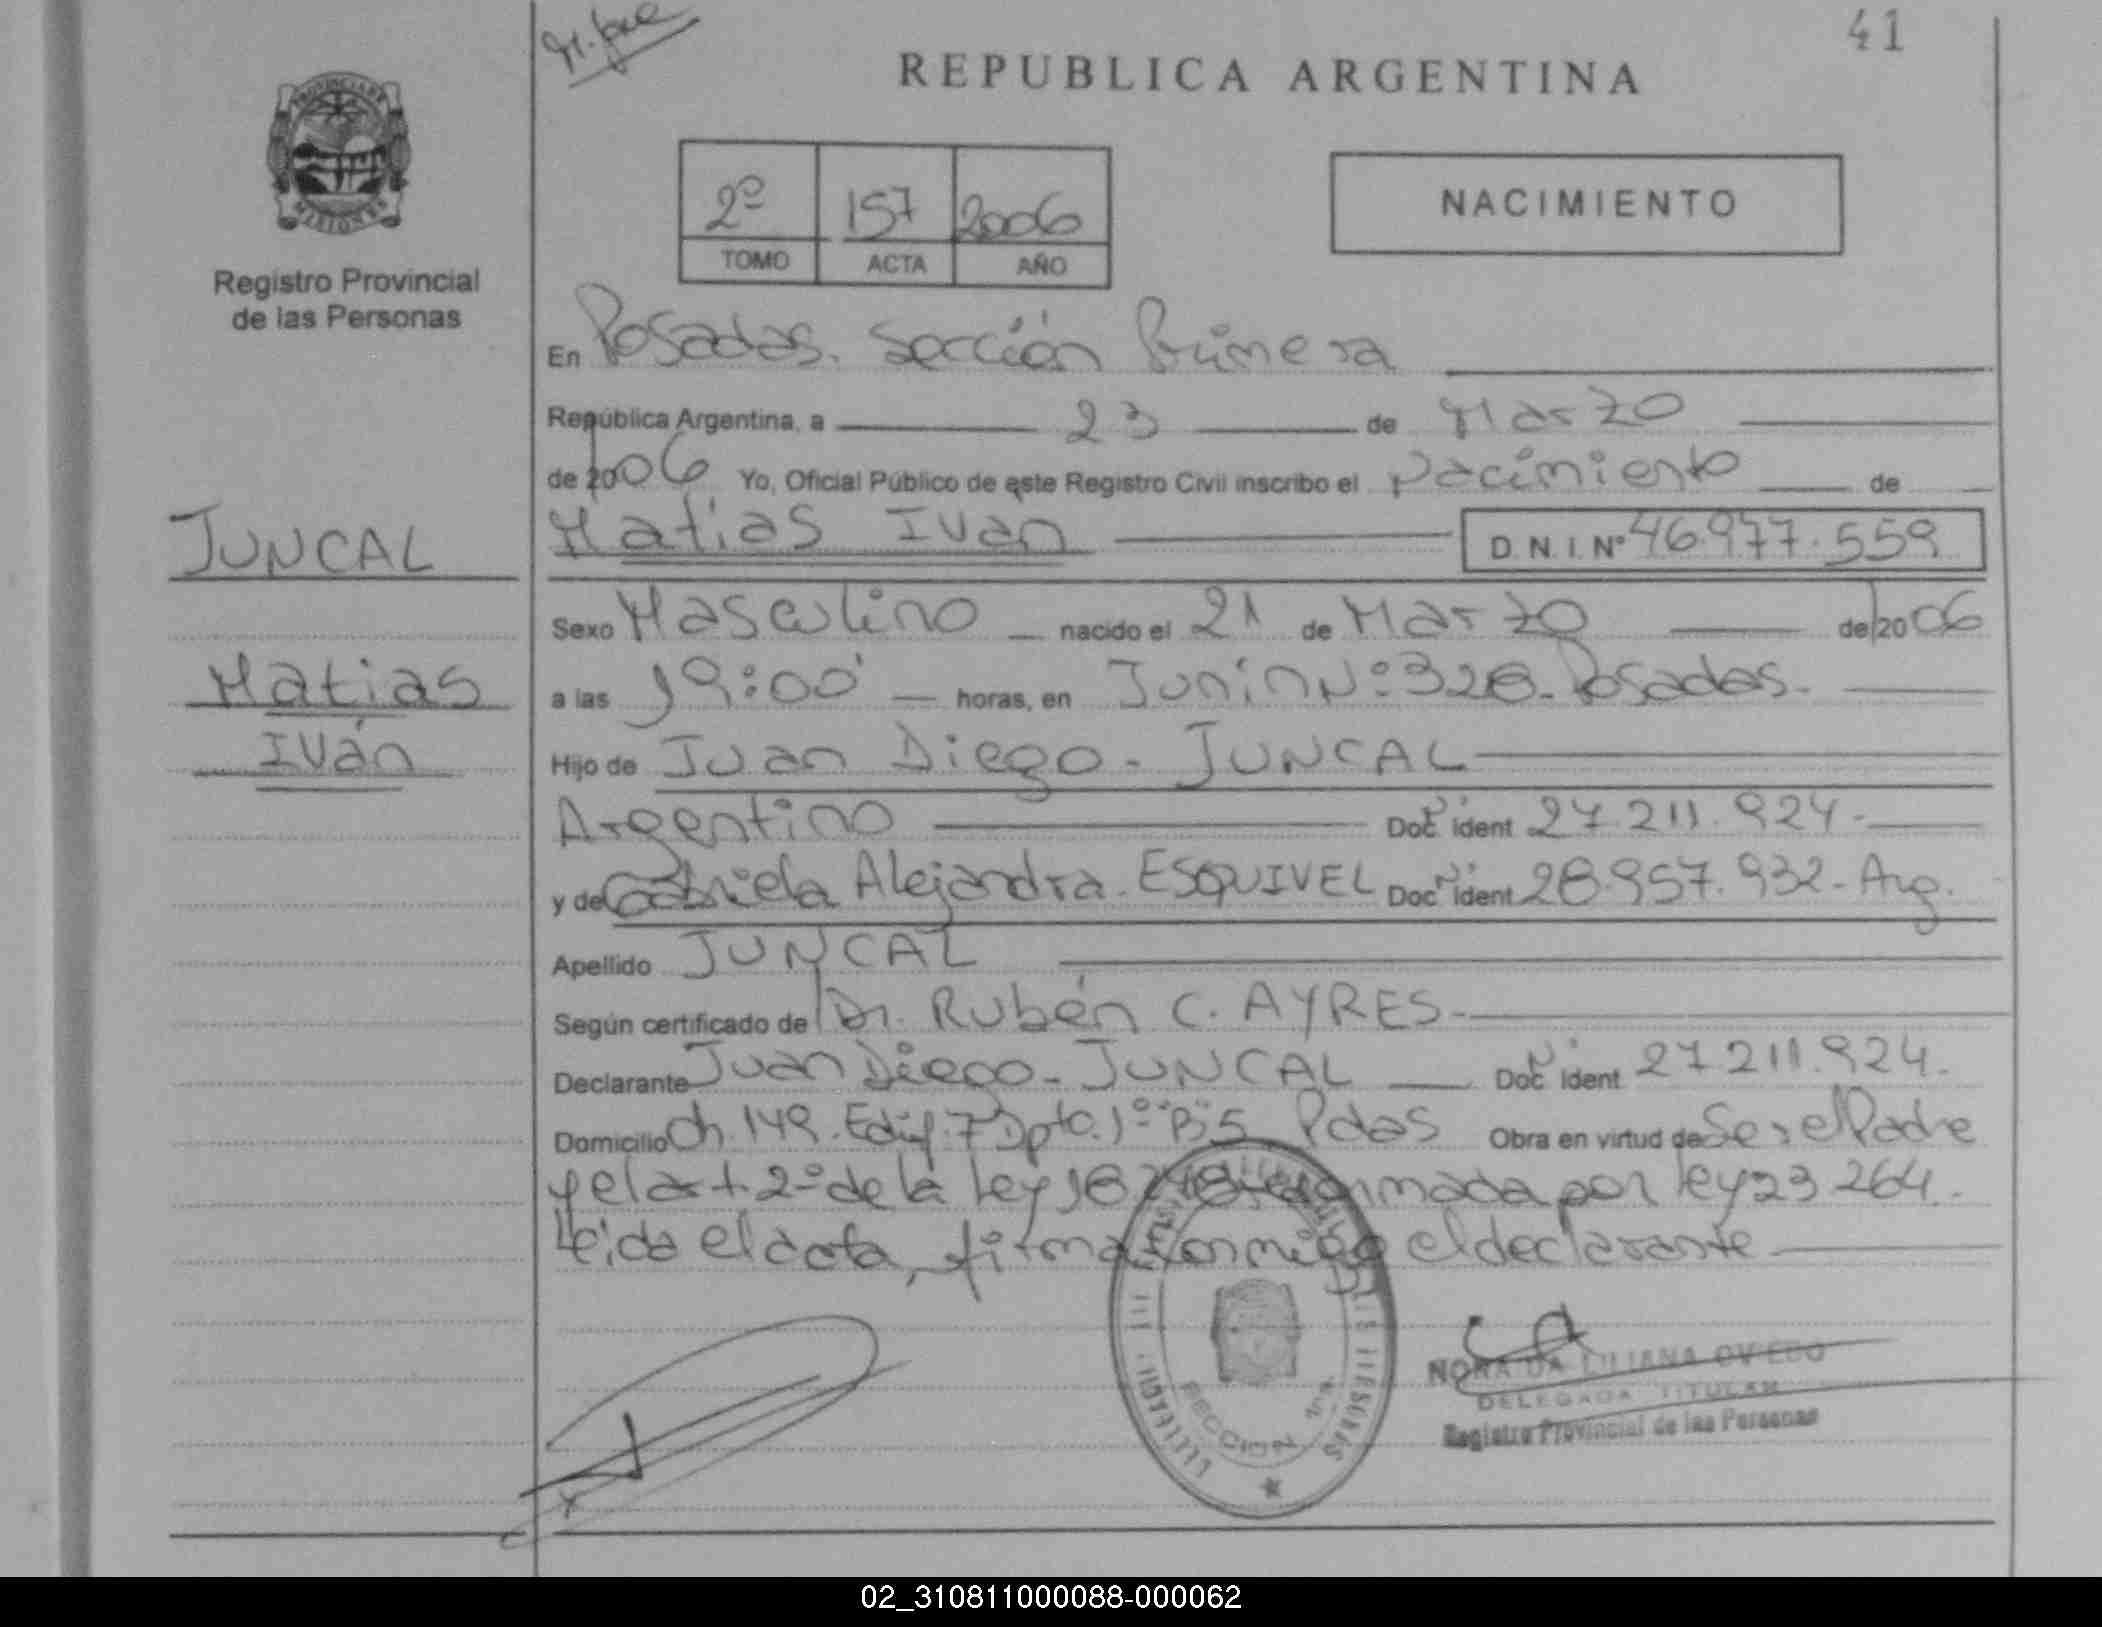 41
REPUBLICA ARGENTINA
PROVINCIA DE
MISIONES
Registro Provincial
de las Personas
2º 157 2006
TOMO ACTA AÑO
NACIMIENTO
En Posadas. Sección Primera
República Argentina, a 23 de Marzo
de 2006 Yo, Oficial Público de este Registro Civil inscribo el nacimiento de
JUNCAL
Matias
Iván
Matias Ivan D.N.I. Nº 46.977.559
Sexo Masculino nacido el 21 de Marzo de 2006
a las 19:00 horas, en Junín Nº 328. Posadas.
Hijo de Juan Diego - JUNCAL
Argentino Doc. ident 27.211.924.-
y de Gabriela Alejandra. ESQUIVEL Doc. ident 28.957.932- Arg.
Apellido JUNCAL
Según certificado de Dr. Rubén C. AYRES.-
Declarante Juan Diego - JUNCAL Doc. ident 27.211.924.
Domicilio Ch. 149. Edif. 7 Dpto. 1º "B" 5 Pdas Obra en virtud de Ser el Padre
y el art 2º de la Ley 18248 reformada por ley 23 264.
Leida el acta, firma conmigo el declarante
SECCION 1ra
LILIANA OVIEDO
DELEGADA TITULAR
Registro Provincial de las Personas
02_310811000088-000062